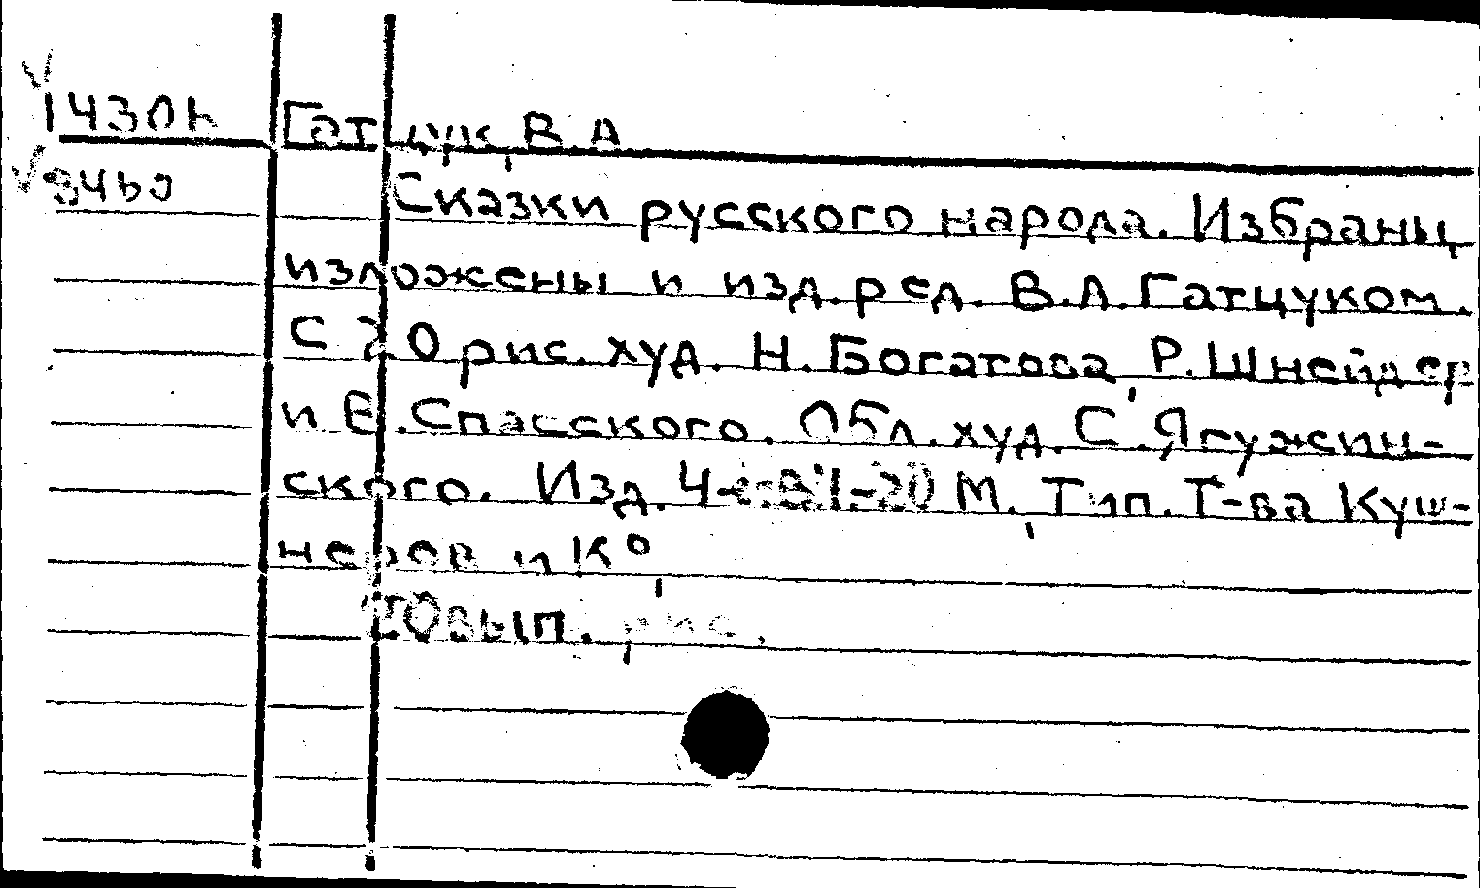 1430h
Гатцук, В.А.
3460
Сказки русского народа. Избраны,
изложены и изд. ред. В.А. Гатцуком.
С 20 рис. худ. Н. Богатова, Р. Шнейдер
и Е. Спасского. Обл. худ. С. Ягужин-
ского. Изд. 4-е. В. 1-20 М. Тип. Т-ва Куш-
нерев и Кº,
20 вып. рис.